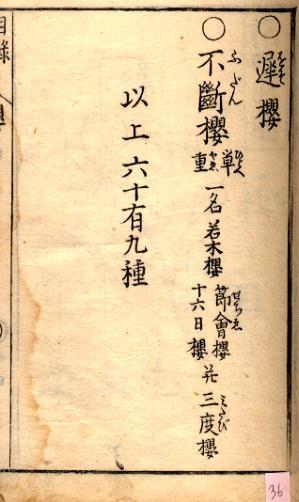 ○遲櫻
○不斷櫻 單 重 一名 若木櫻 節會櫻 十六日櫻 并 三度櫻
ふだん せちゑ みたび
以上六十有九種
目錄
36